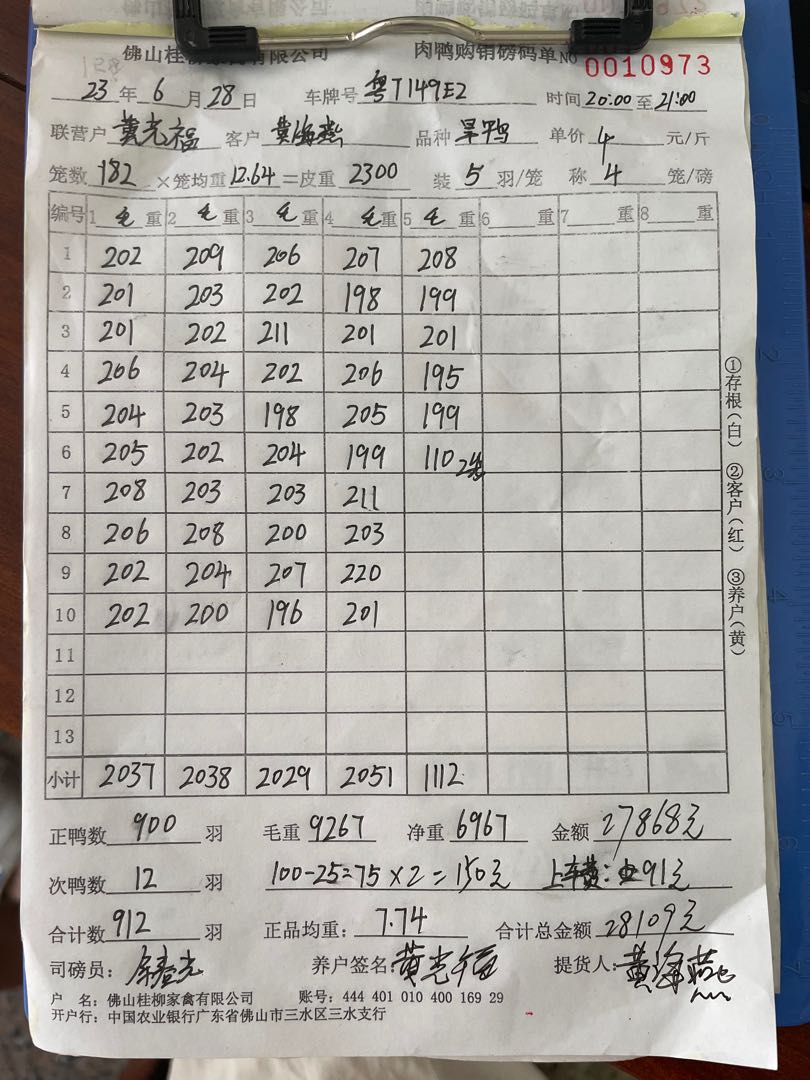 佛山桂柳家禽有限公司 肉鸭购销磅码单 NO 0010973
23 年 6 月 28 日 车牌号 粤T149E2 时间 20:00 至 21:00
联营户 黄光福 客户 黄海燕 品种 旱鸭 单价 4 元/斤
笼数 182 ×笼均重 12.64 =皮重 2300 装 5 羽/笼 称 4 笼/磅
编号 1 毛 重 2 毛 重 3 毛 重 4 毛 重 5 毛 重 6 重 7 重 8 重
1 202 209 206 207 208
2 201 203 202 198 199
3 201 202 211 201 201
4 206 204 202 206 195
5 204 203 198 205 199
6 205 202 204 199 110 2笼
7 208 203 203 211
8 206 208 200 203
9 202 204 207 220
10 202 200 196 201
11
12
13
小计 2037 2038 2029 2051 1112
正鸭数 900 羽 毛重 9267 净重 6967 金额 27868元
次鸭数 12 羽 100-25=75×2=150元 上车费: 91元
合计数 912 羽 正品均重: 7.74 合计总金额 28109元
司磅员: 养户签名: 黄光福 提货人: 黄海燕
户 名: 佛山桂柳家禽有限公司 账号: 444 401 010 400 169 29
开户行: 中国农业银行广东省佛山市三水区三水支行
①存根(白) ②客户(红) ③养户(黄)